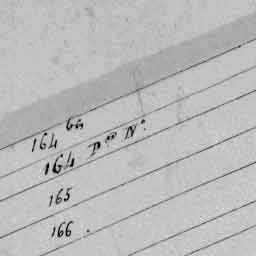 164 ba
164 Dor No:
165
166.